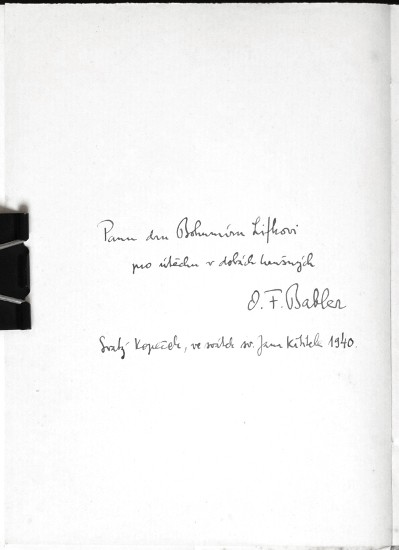 Panu dru Bohumíru Lifkovi
pro útěchu v dobách
O. F. Babler
Svatý Kopeček, ve sv. Jana Křtitele 1940.